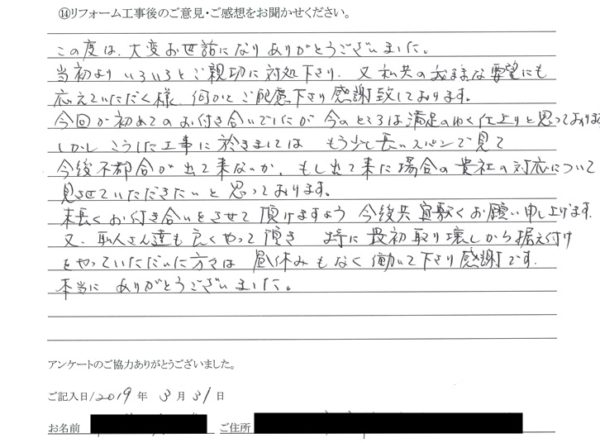 ⑭リフォーム工事後のご意見・ご感想をお聞かせください。
この度は、大変お世話になりありがとうございました。
当初よりいろいろとご親切に対処下さり、又私共のわがままな要望にも
応えていただく様、何かとご配慮下さり感謝致しております。
今回が初めてのお付き合いでしたが今のところは満足のゆく仕上りと思っておりま
しかしこうした工事に於きましては もう少し長いスパンで見て
今後不都合が出て来ないか、もし出て来た場合の貴社の対応について
見させていただきたいと思っております。
末長くお付き合いをさせて頂けますよう今後共宜敷くお願い申し上げます。
又、職人さん達も良くやって頂き 特に最初取り壊しから据え付け
をやっていただいた方々は 昼休みもなく働いて下さり感謝です。
本当に ありがとうございました。
アンケートのご協力ありがとうございました。
ご記入日/2019年 3月 31日
お名前 ご住所